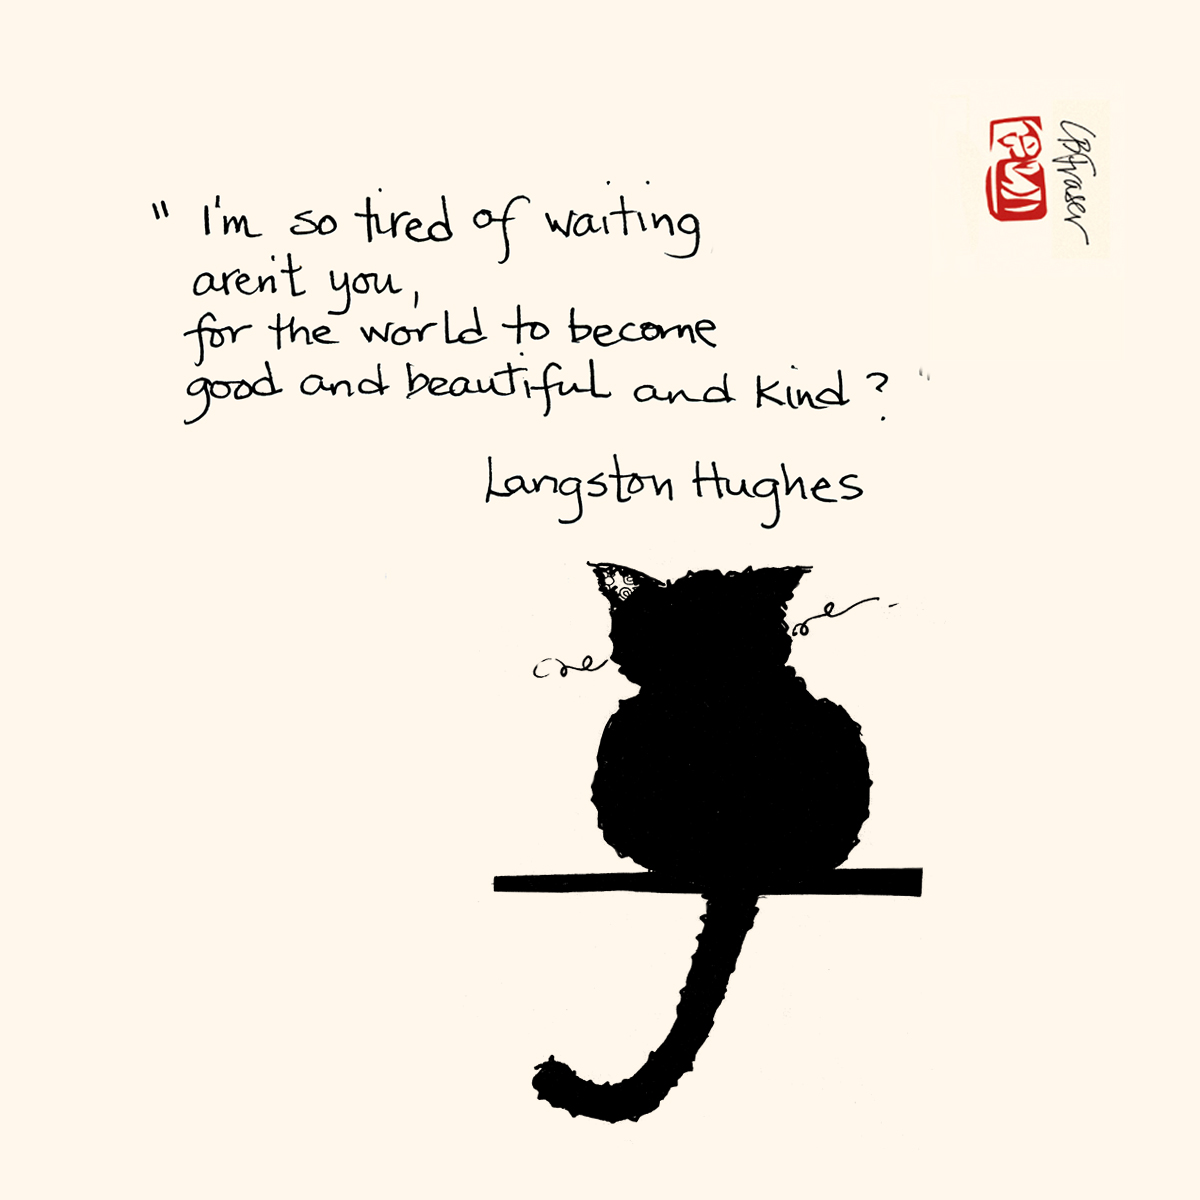 "I'm so tired of waiting
aren't you,
for the world to become
good and beautiful and kind?"
Langston Hughes
CBFraser